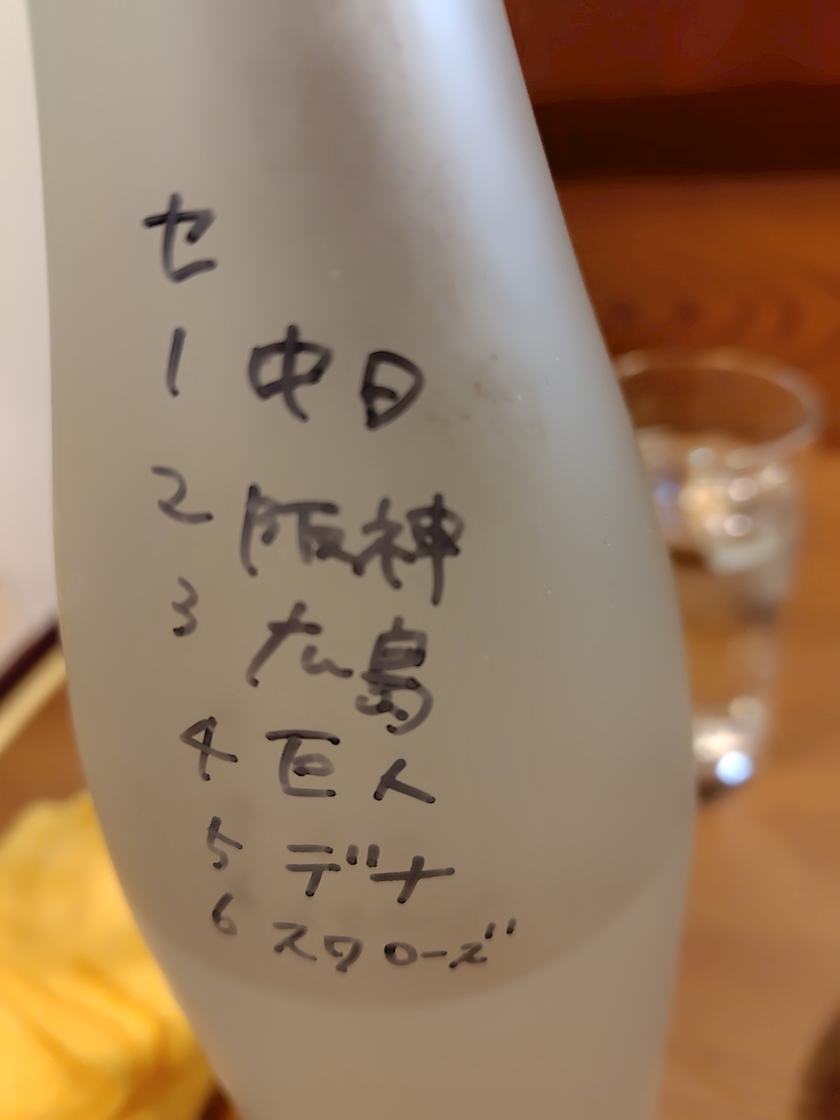 セ
1 中日
2 阪神
3 広島
4 巨人
5 デナ
6 スワローズ